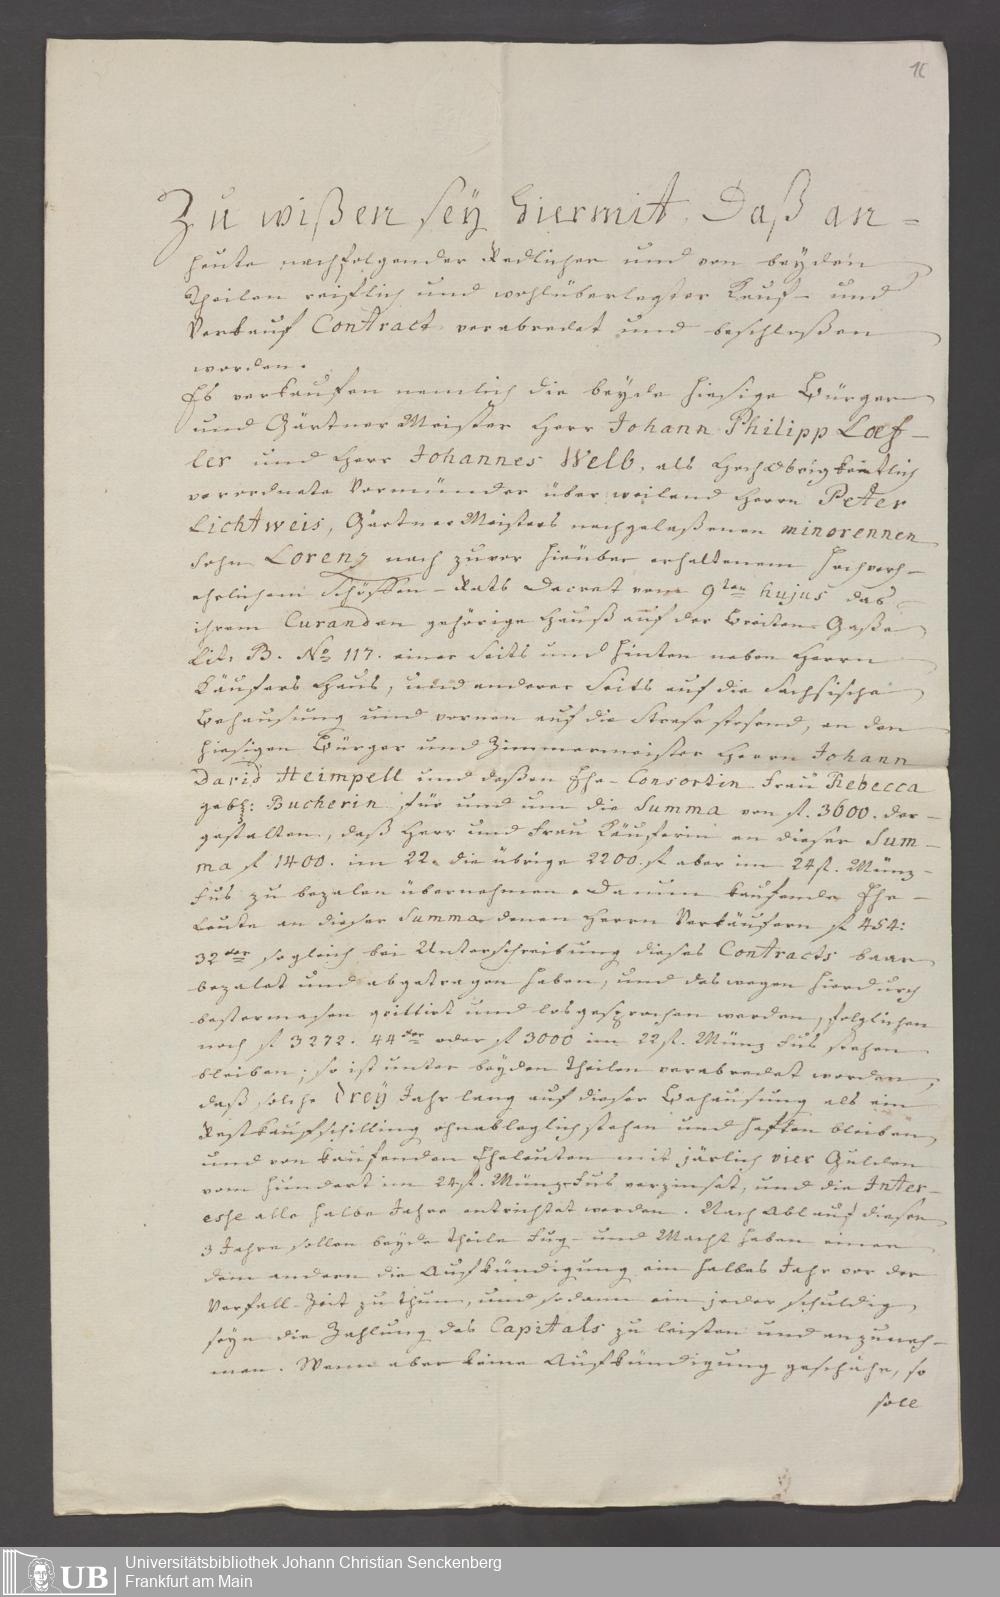 16
Zu wißen sey hiermit, Daß an-
heute nachfolgender Redlicher und von beyden
Theilen reiflich und wohlüberlegter Kauf- und
Verkauf Contract verabredet und beschloßen
worden.
Es verkaufen nemlich die beyde hiesige Bürger
und Gärtner Meister Herr Johann Philipp Loef-
ler und Herr Johannes Welb, als Hochobrigkeitlich
verordnete Vormünder über weiland Herrn Peter
Lichtweis, Gärtner Meisters nachgelaßenen minorennen
Sohn Lorenz nach zuvor hierüber erhaltenem Hochverh-
ehrlichem Schöffen-Raths Decret vom 9ten hujus das
ihrem Curanden gehörige Hauß auf der Breiten Gaße
Lit. B. No 117. einer Seits und hinten neben Herrn
Käufers Haus, und anderer Seits auf die Sachsische
Behausung und vornen auf die Strase stosend, an den
hiesigen Bürger und Zimmermeister Herrn Johann
David Heimpell und deßen Ehe-Consortin Frau Rebecca
gebh: Bucherin für und um die Summa von fl. 3600. der-
gestalten, daß Herr und Frau Käuferin an dieser Sum-
ma fl 1400. im 22. die übrige 2200. fl aber im 24fl. Münz-
Fus zu bezalen übernehmen. Da nun kaufende Ehe-
Leute an dieser Summa denen Herrn Verkäufern fl 454:
32 xer sogleich bei Unterschreibung dieses Contracts baar
bezalet und abgetragen haben, und deswegen hierdurch
bestermasen quittirt und losgesprochen werden, folglichen
noch fl 3272. 44 xer oder fl 3000 im 22fl. Münz Fus stehen
bleiben; so ist unter beyden Theilen verabredet worden,
daß solche Drey Jahr lang auf dieser Behausung als ein
Restkaufschilling ohnableglich stehen und haften bleiben,
und von kaufenden Eheleuten mit järlich vier Gulden
vom hundert im 24fl. Münz-Fus verzinset, und die Inter-
esse alle halbe Jahre entrichtet werden. Nach Ablauf diesen
3 Jahre sollen beyde Theile Fug- und Macht haben einer
dem andern die Aufkündigung ein halbes Jahr vor der
Verfall-Zeit zu thun, und sodann ein jeder schuldig
seyn die Zahlung des Capitals zu leisten und anzuneh-
men. Wenn aber keine Aufkündigung geschähe, so
soll
UB
Universitätsbibliothek Johann Christian Senckenberg
Frankfurt am Main